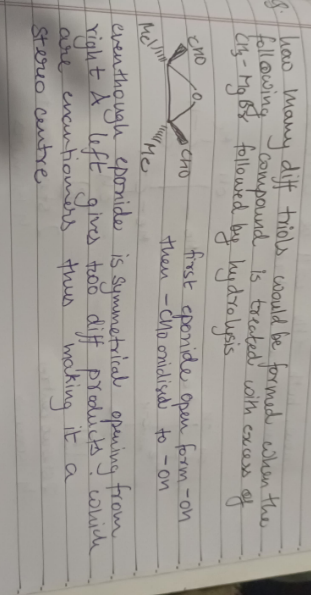 8. how many diff triols would be formed when the
following compound is treated with excess of
CH3-MgBr followed by hydrolysis
CHO
O
CHO
Me
Me
first epoxide open form -OH
then -CHO oxidised to -OH
eventhough epoxide is symmetrical opening from
right & left gives two diff products. which
are enantiomers thus making it a
stereo centre